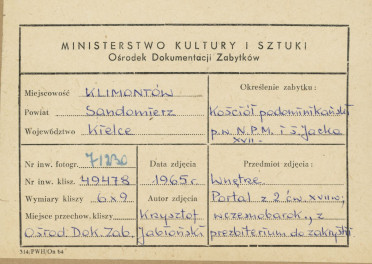 MINISTERSTWO KULTURY I SZTUKI
Ośrodek Dokumentacji Zabytków
Miejscowość KLIMONTÓW
Powiat Sandomierz
Województwo Kielce
Określenie zabytku:
Kościół podominikański
p.w. N.P.M. i ś. Jacka
XVII
Nr inw. fotogr. 71230
Nr inw. klisz. 49478
Wymiary kliszy 6x9
Miejsce przechow. kliszy
Ośrod. Dok. Zab.
Data zdjęcia
1965 r.
Autor zdjęcia
Krzysztof
Jabłoński
Przedmiot zdjęcia:
Wnętrze
Portal z 2 ćw. XVII w;
wczesnobarok., z
prezbiterium do zakrystii